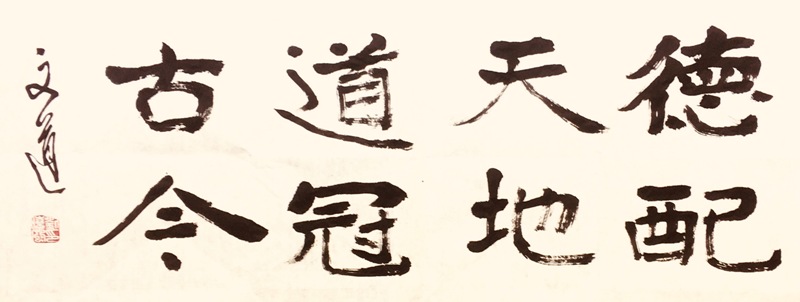 德配
天地
道冠
古今
文道